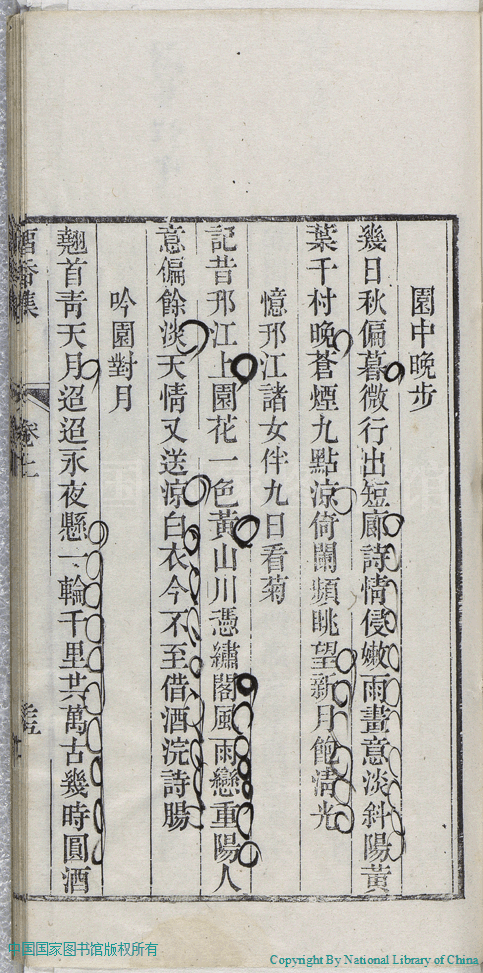 園中晚步
幾日秋偏暮微行出短廊詩情侵嫩雨畫意淡斜陽黃
葉千村晚蒼煙九點涼倚闌頻眺望新月飽清光
憶邗江諸女伴九日看菊
記昔邗江上園花一色黃山川憑繡閣風雨戀重陽人
意偏餘淡天情又送涼白衣今不至借酒浣詩腸
吟園對月
翹首青天月迢迢永夜懸一輪千里共萬古幾時圓酒
香集
卷七
中国国家图书馆版权所有
Copyright By National Library of China